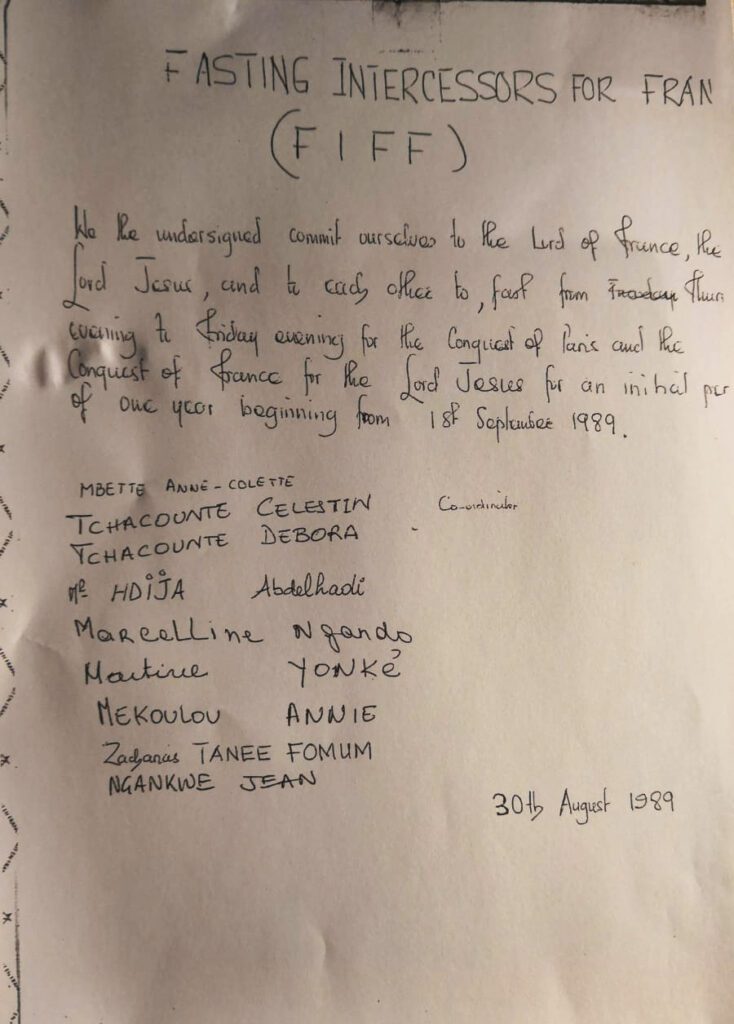 FASTING INTERCESSORS FOR FRAN
(FIFF)
We the undersigned commit ourselves to the Lord of France, the
Lord Jesus, and to each other to, fast from Thurs
evening to Friday evening for the Conquest of Paris and the
Conquest of France for the Lord Jesus for an initial per
of one year beginning from 1st September 1989.
MBETTE ANNE-COLETTE
TCHACOUNTE CELESTIN Co-ordinator
TCHACOUNTE DEBORA
Mr HDIJA Abdelhadi
Marcelline Ngando
Martine YONKÉ
MEKOULOU ANNIE
Zacharias TANEE FOMUM
NGANKWE JEAN
30th August 1989